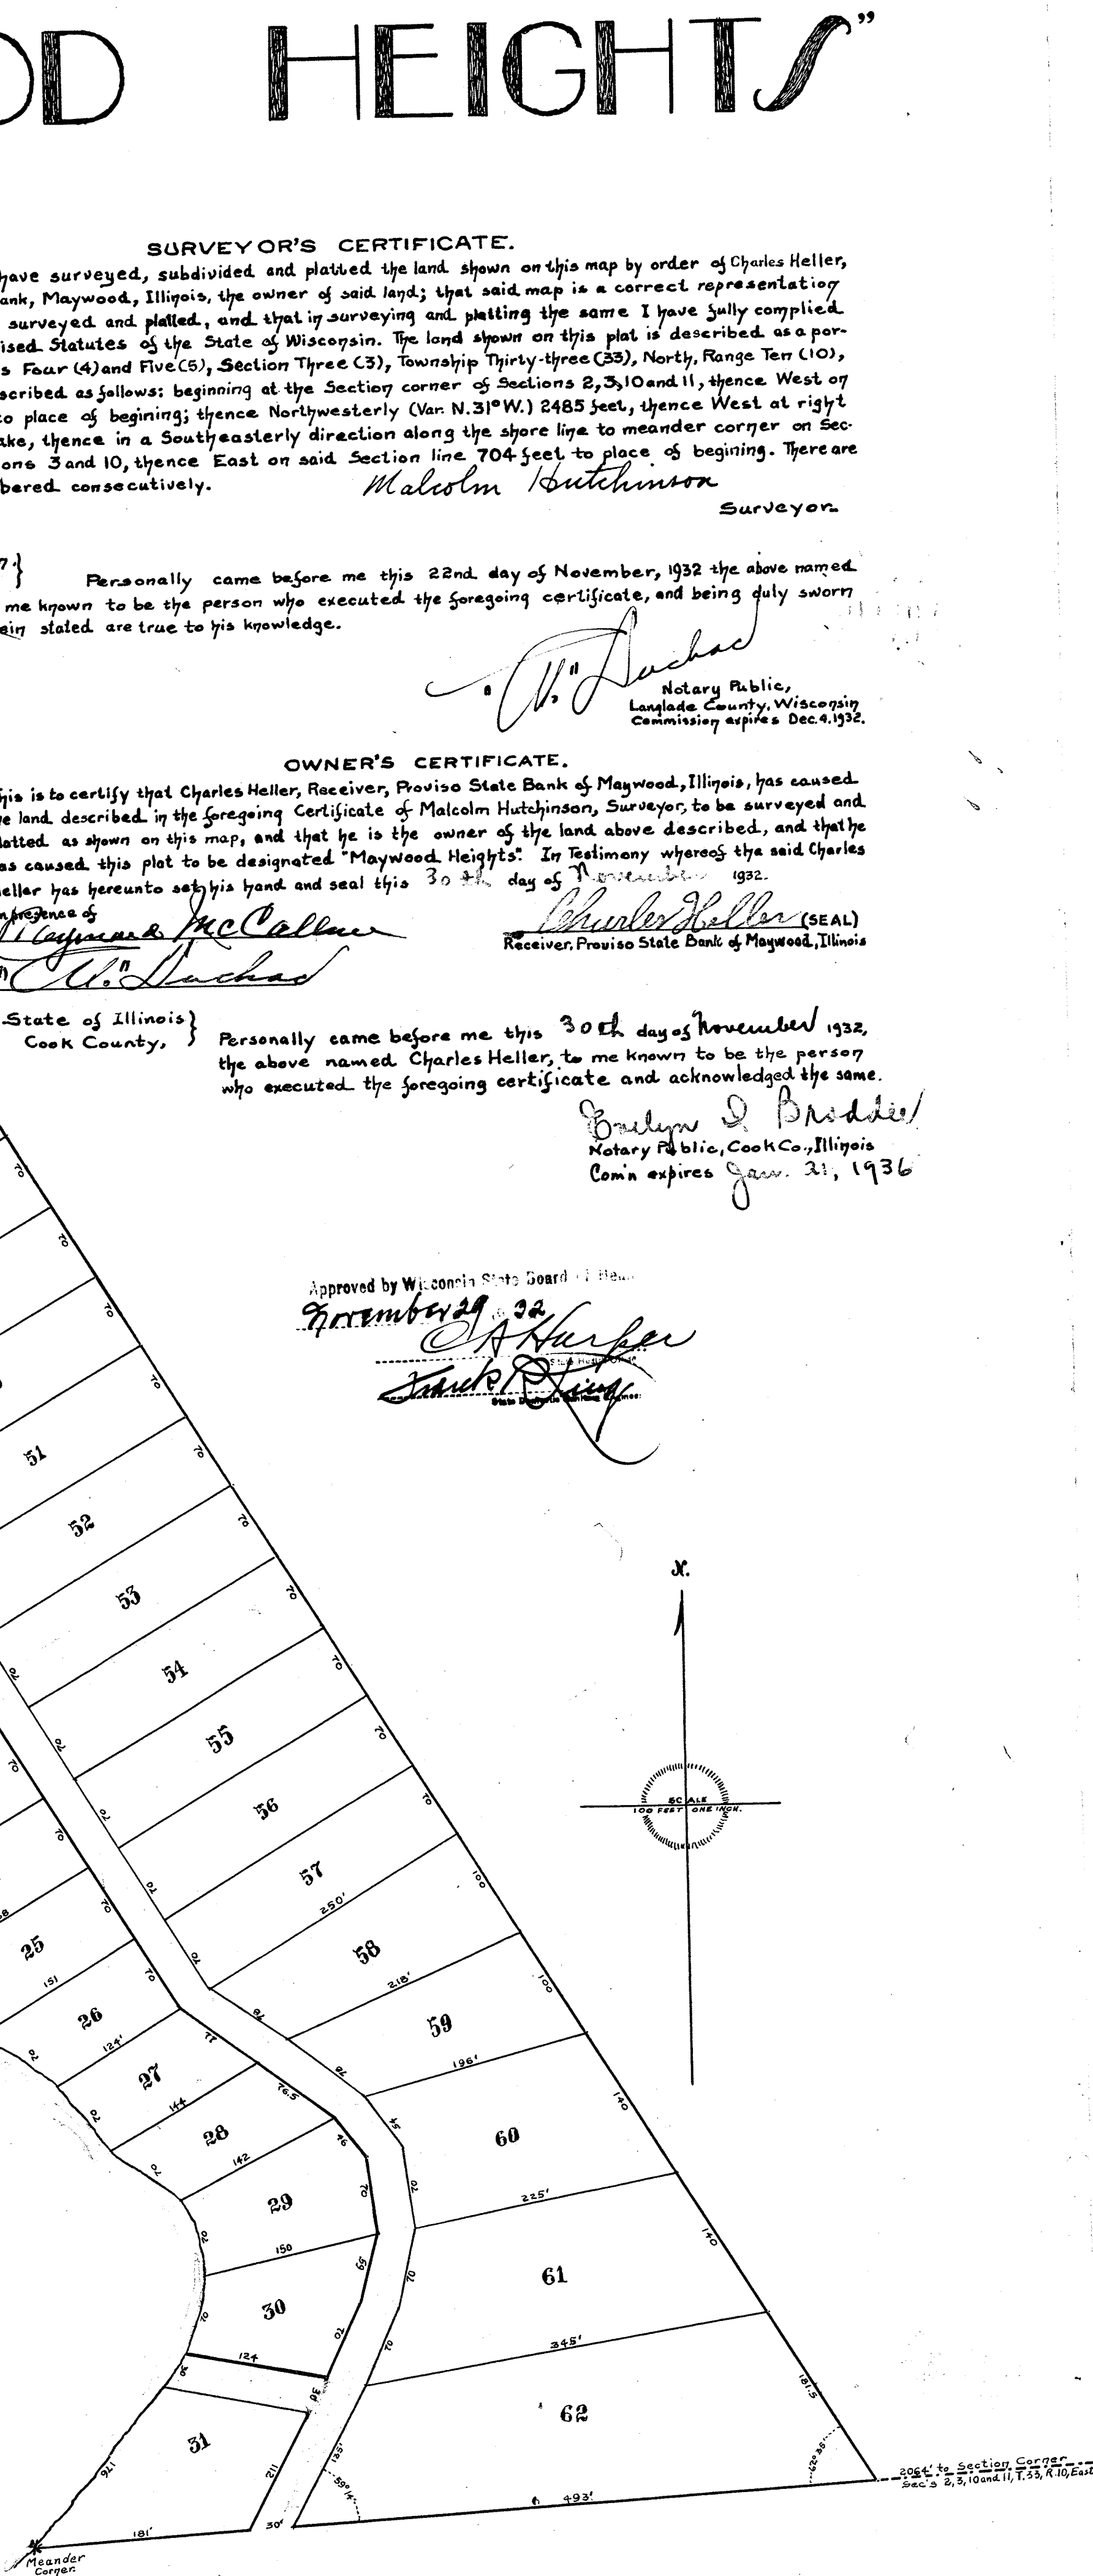 OD HEIGHTS”
SURVEYOR'S CERTIFICATE.
have surveyed, subdivided and platted the land shown on this map by order of Charles Heller,
ank, Maywood, Illinois, the owner of said land; that said map is a correct representation
surveyed and platted, and that in surveying and platting the same I have fully complied
ised Statutes of the State of Wisconsin. The land shown on this plat is described as a por-
s Four (4) and Five (5), Section Three (3), Township Thirty-three (33), North, Range Ten (10),
scribed as follows: beginning at the Section corner of Sections 2,3,10 and 11, thence West on
to place of begining; thence Northwesterly (Var. N.31° W.) 2485 feet, thence West at right
ake, thence in a Southeasterly direction along the shore line to meander corner on Sec-
ons 3 and 10, thence East on said Section line 704 feet to place of begining. There are
bered consecutively.
Malcolm Hutchinson
Surveyor.
Personally came before me this 22nd day of November, 1932 the above named
me known to be the person who executed the foregoing certificate, and being duly sworn
ein stated are true to his knowledge.
Notary Public,
Langlade County, Wisconsin
Commission expires Dec. 4. 1932.
OWNER'S CERTIFICATE.
his is to certify that Charles Heller, Receiver, Proviso State Bank of Maywood, Illinois, has caused
e land described in the foregoing Certificate of Malcolm Hutchinson, Surveyor, to be surveyed and
latted as shown on this map, and that he is the owner of the land above described, and that he
as caused this plot to be designated "Maywood Heights". In Testimony whereof the said Charles
eller has hereunto set his hand and seal this 30th day of November 1932.
n presence of
McCallum
Charles Heller (SEAL)
Receiver, Proviso State Bank of Maywood, Illinois
"W." Duchac
State of Illinois }
Cook County, }
Personally came before me this 30th day of November 1932,
the above named Charles Heller, to me known to be the person
who executed the foregoing certificate and acknowledged the same.
Evelyn
Notary Public, Cook Co., Illinois
Com'n expires Jan. 21, 1936
Approved by Wisconsin State Board
November 29 32
C A Harper
Frank R King
70
70
70
70
51
70
52
70
53
70
54
70
70
55
70
70
56
70
70
57
70
250'
100
25
151
70
58
218'
100
26
124'
70
78
59
196'
27
144
77
78
140
28
142
76.5
54
60
29
46
70
70
225'
150
65
61
140
30
70
70
124
345'
30
30
62
181.5
31
176
112
135'
59°14'
62°35'
181'
30'
493'
2064' to Section Corner
Sec's 2,3,10 and 11, T.33, R.10, East
Meander
Corner.
N.
SCALE
100 FEET ONE INCH.